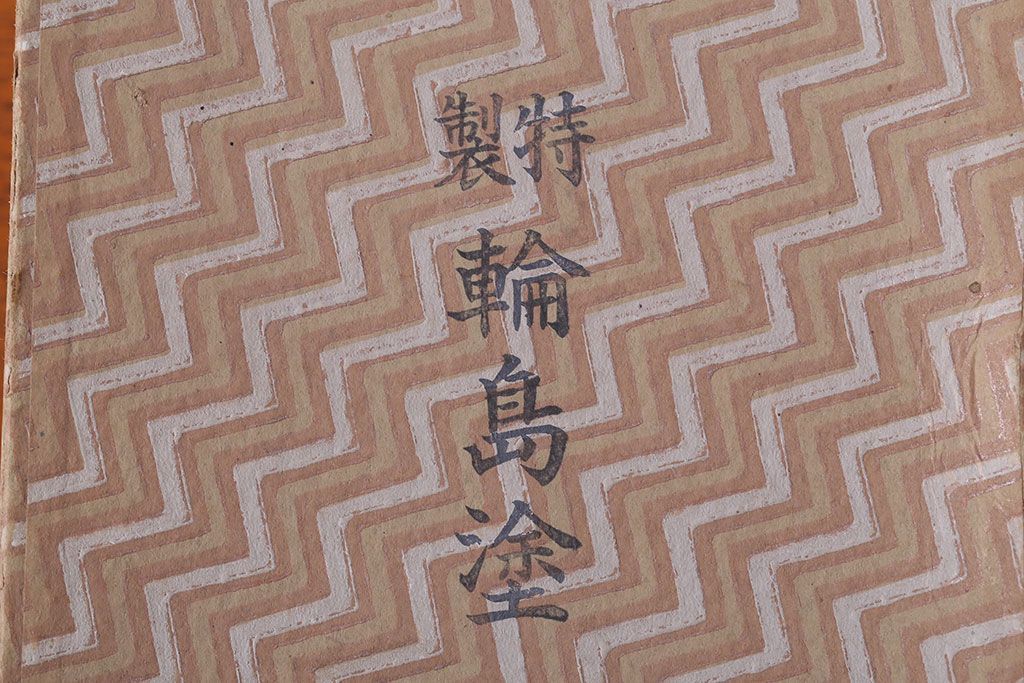 特製
輪島塗